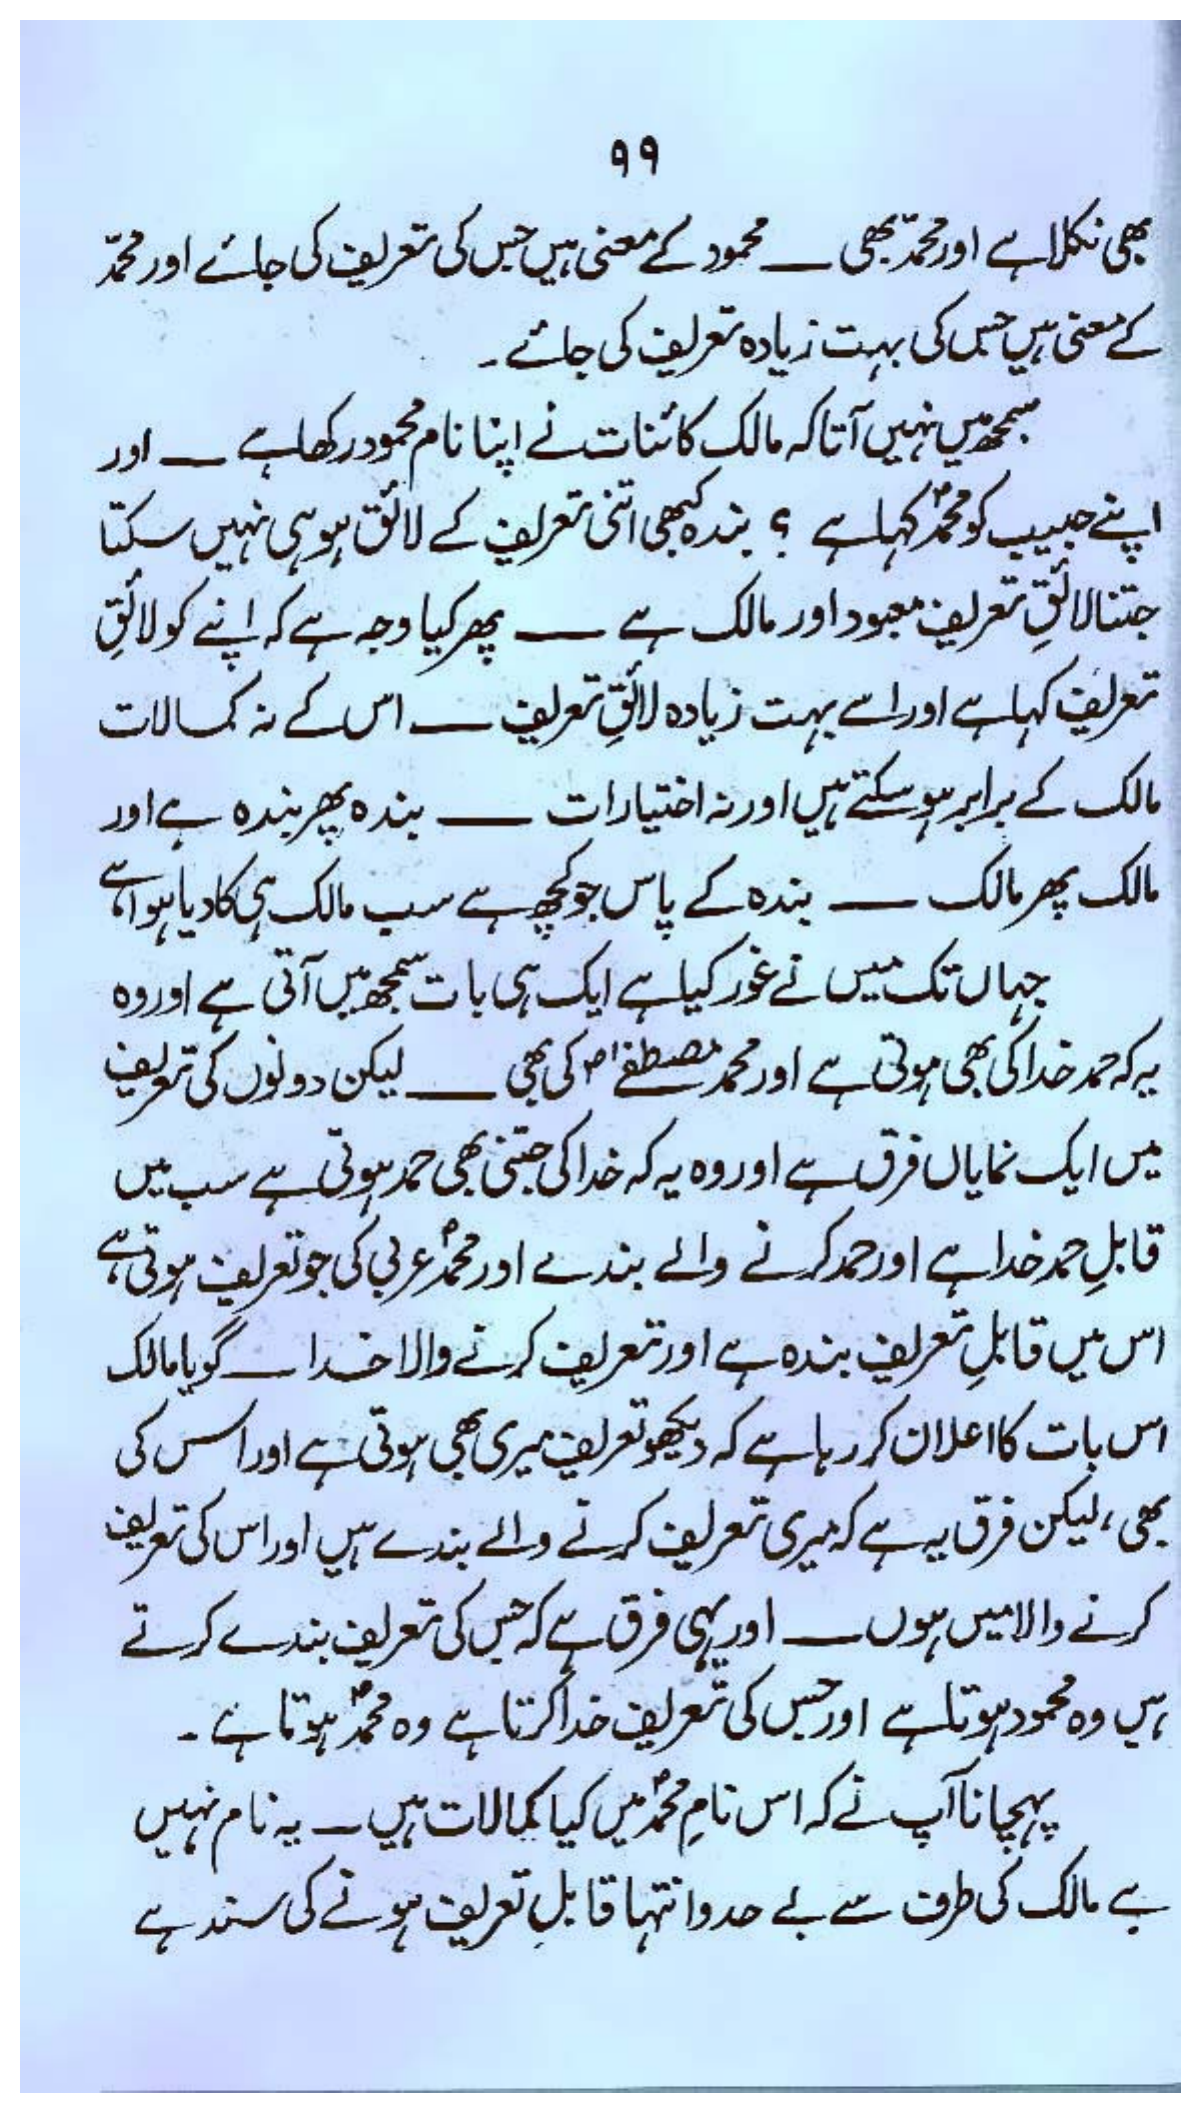 ۹۹
بھی نکلا ہے اور محمدؐ بھی ـــ محمود کے معنی ہیں جس کی تعریف کی جائے اور محمدؐ
کے معنی ہیں جس کی بہت زیادہ تعریف کی جائے ۔
سمجھ میں نہیں آتا کہ مالک کائنات نے اپنا نام محمود رکھا ہے ـــ اور
اپنے حبیب کو محمدؐ کہا ہے ؟ بندہ کبھی اتنی تعریف کے لائق ہو ہی نہیں سکتا
جتنا لائقِ تعریف معبود اور مالک ہے ـــ پھر کیا وجہ ہے کہ اپنے کو لائقِ
تعریف کہا ہے اور اسے بہت زیادہ لائقِ تعریف ـــ اس کے نہ کمالات
مالک کے برابر ہو سکتے ہیں اور نہ اختیارات ـــ بندہ پھر بندہ ہے اور
مالک پھر مالک ـــ بندہ کے پاس جو کچھ ہے سب مالک ہی کا دیا ہوا ہے
جہاں تک میں نے غور کیا ہے ایک ہی بات سمجھ میں آتی ہے اور وہ
یہ کہ حمد خدا کی بھی ہوتی ہے اور محمد مصطفےٰؐ کی بھی ـــ لیکن دونوں کی تعریف
میں ایک نمایاں فرق ہے اور وہ یہ کہ خدا کی جتنی بھی حمد ہوتی ہے سب میں
قابلِ حمد خدا ہے اور حمد کرنے والے بندے اور محمدؐ عربی کی جو تعریف ہوتی ہے
اس میں قابلِ تعریف بندہ ہے اور تعریف کرنے والا خدا ـــ گویا مالک
اس بات کا اعلان کر رہا ہے کہ دیکھو تعریف میری بھی ہوتی ہے اور اس کی
بھی، لیکن فرق یہ ہے کہ میری تعریف کرنے والے بندے ہیں اور اس کی تعریف
کرنے والا میں ہوں ـــ اور یہی فرق ہے کہ جس کی تعریف بندے کرتے
ہیں وہ محمود ہوتا ہے اور جس کی تعریف خدا کرتا ہے وہ محمدؐ ہوتا ہے ۔
پہچانا آپ نے کہ اس نامِ محمدؐ میں کیا کمالات ہیں ـــ یہ نام نہیں
ہے مالک کی طرف سے بے حد و انتہا قابلِ تعریف ہونے کی سند ہے